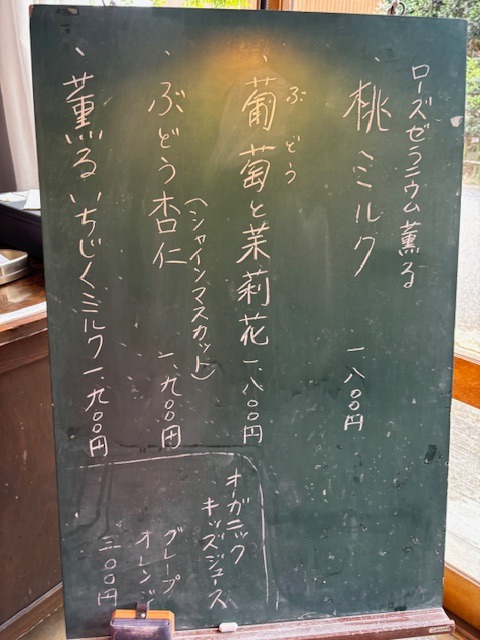 ローズゼラニウム薫る
、桃ミルク 一八〇〇円
ぶどう
、葡萄と茉莉花 一、八〇〇円
(シャインマスカット)
、ぶどう杏仁 一、九〇〇円
、薫るいちじくミルク 一、九〇〇円
オーガニック
キッズジュース
グレープ
オレンジ
三〇〇円